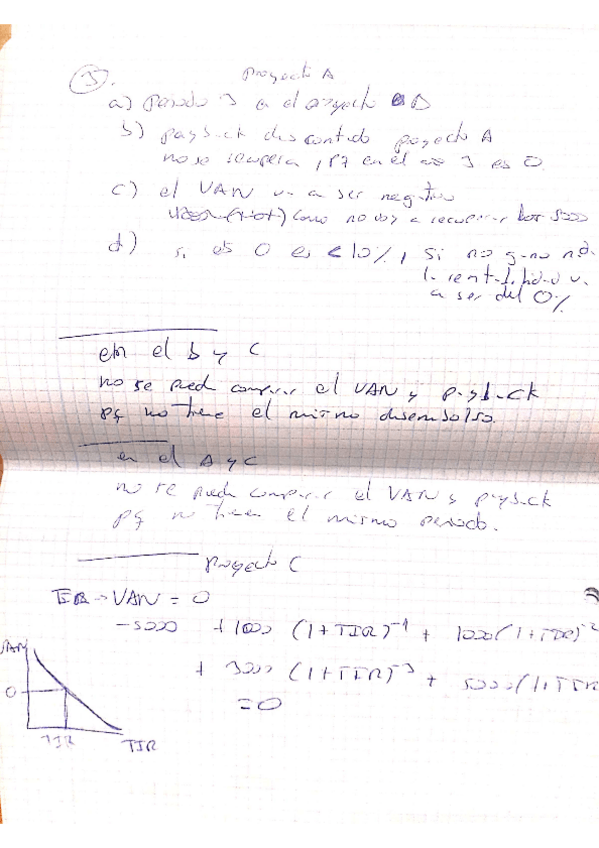 5.
Proyecto A
a) Periodo 3 en el proyecto
b) payback descontado proyecto A
no se recupera, pq en el año 3 es 0.
c) el VAN va a ser negativo
como no voy a recuperar los 5000
d) si es 0 es <10%, si no gano nada
la rentabilidad va
a ser del 0%
en el b y c
no se pued comparar el VAN y payback
pq no tiene el mismo desembolso.
en el A y C
no se puede comparar el VAN y payback
pq no tienen el mismo periodo.
Proyecto C
TIR → VAN = 0
-5000 + 1000 (1+TIR)⁻¹ + 1000 (1+TIR)⁻²
+ 3000 (1+TIR)⁻³ + 5000 (1+TIR
= 0
VAN
0
TIR
TIR